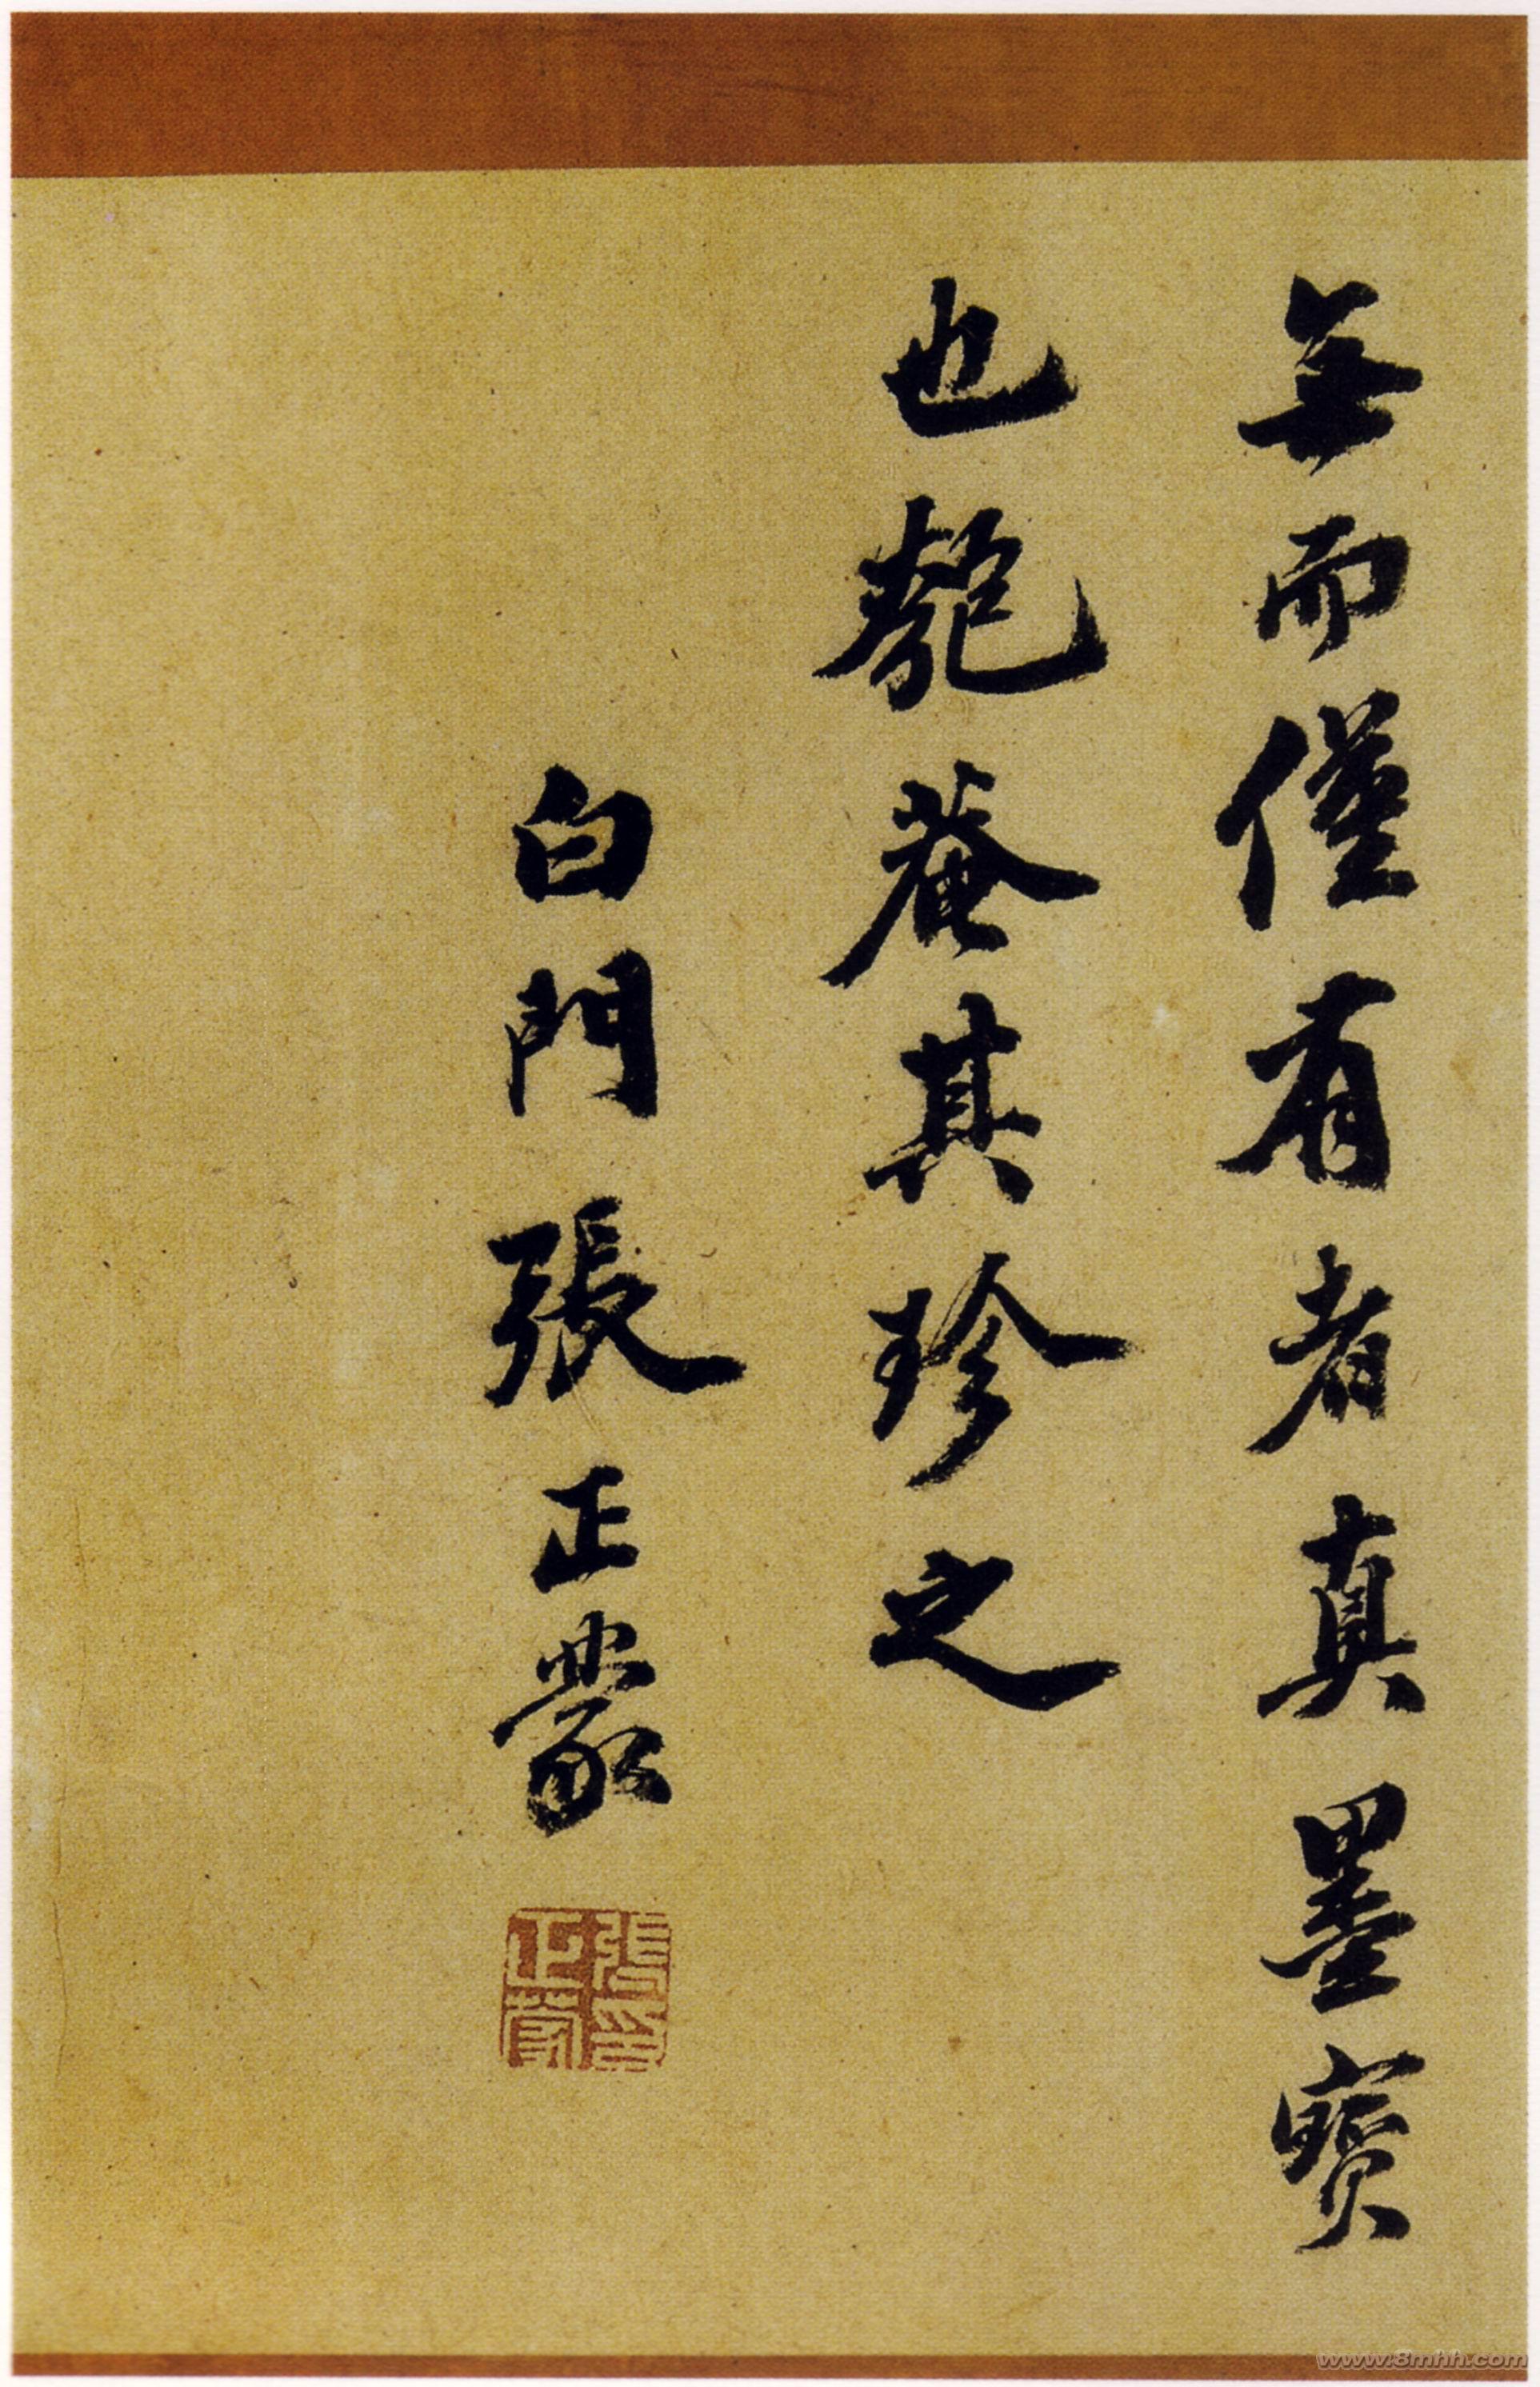 無而僅有者真墨寶
也匏菴其珍之
白門張正蒙
張正蒙印
www.8mhh.com